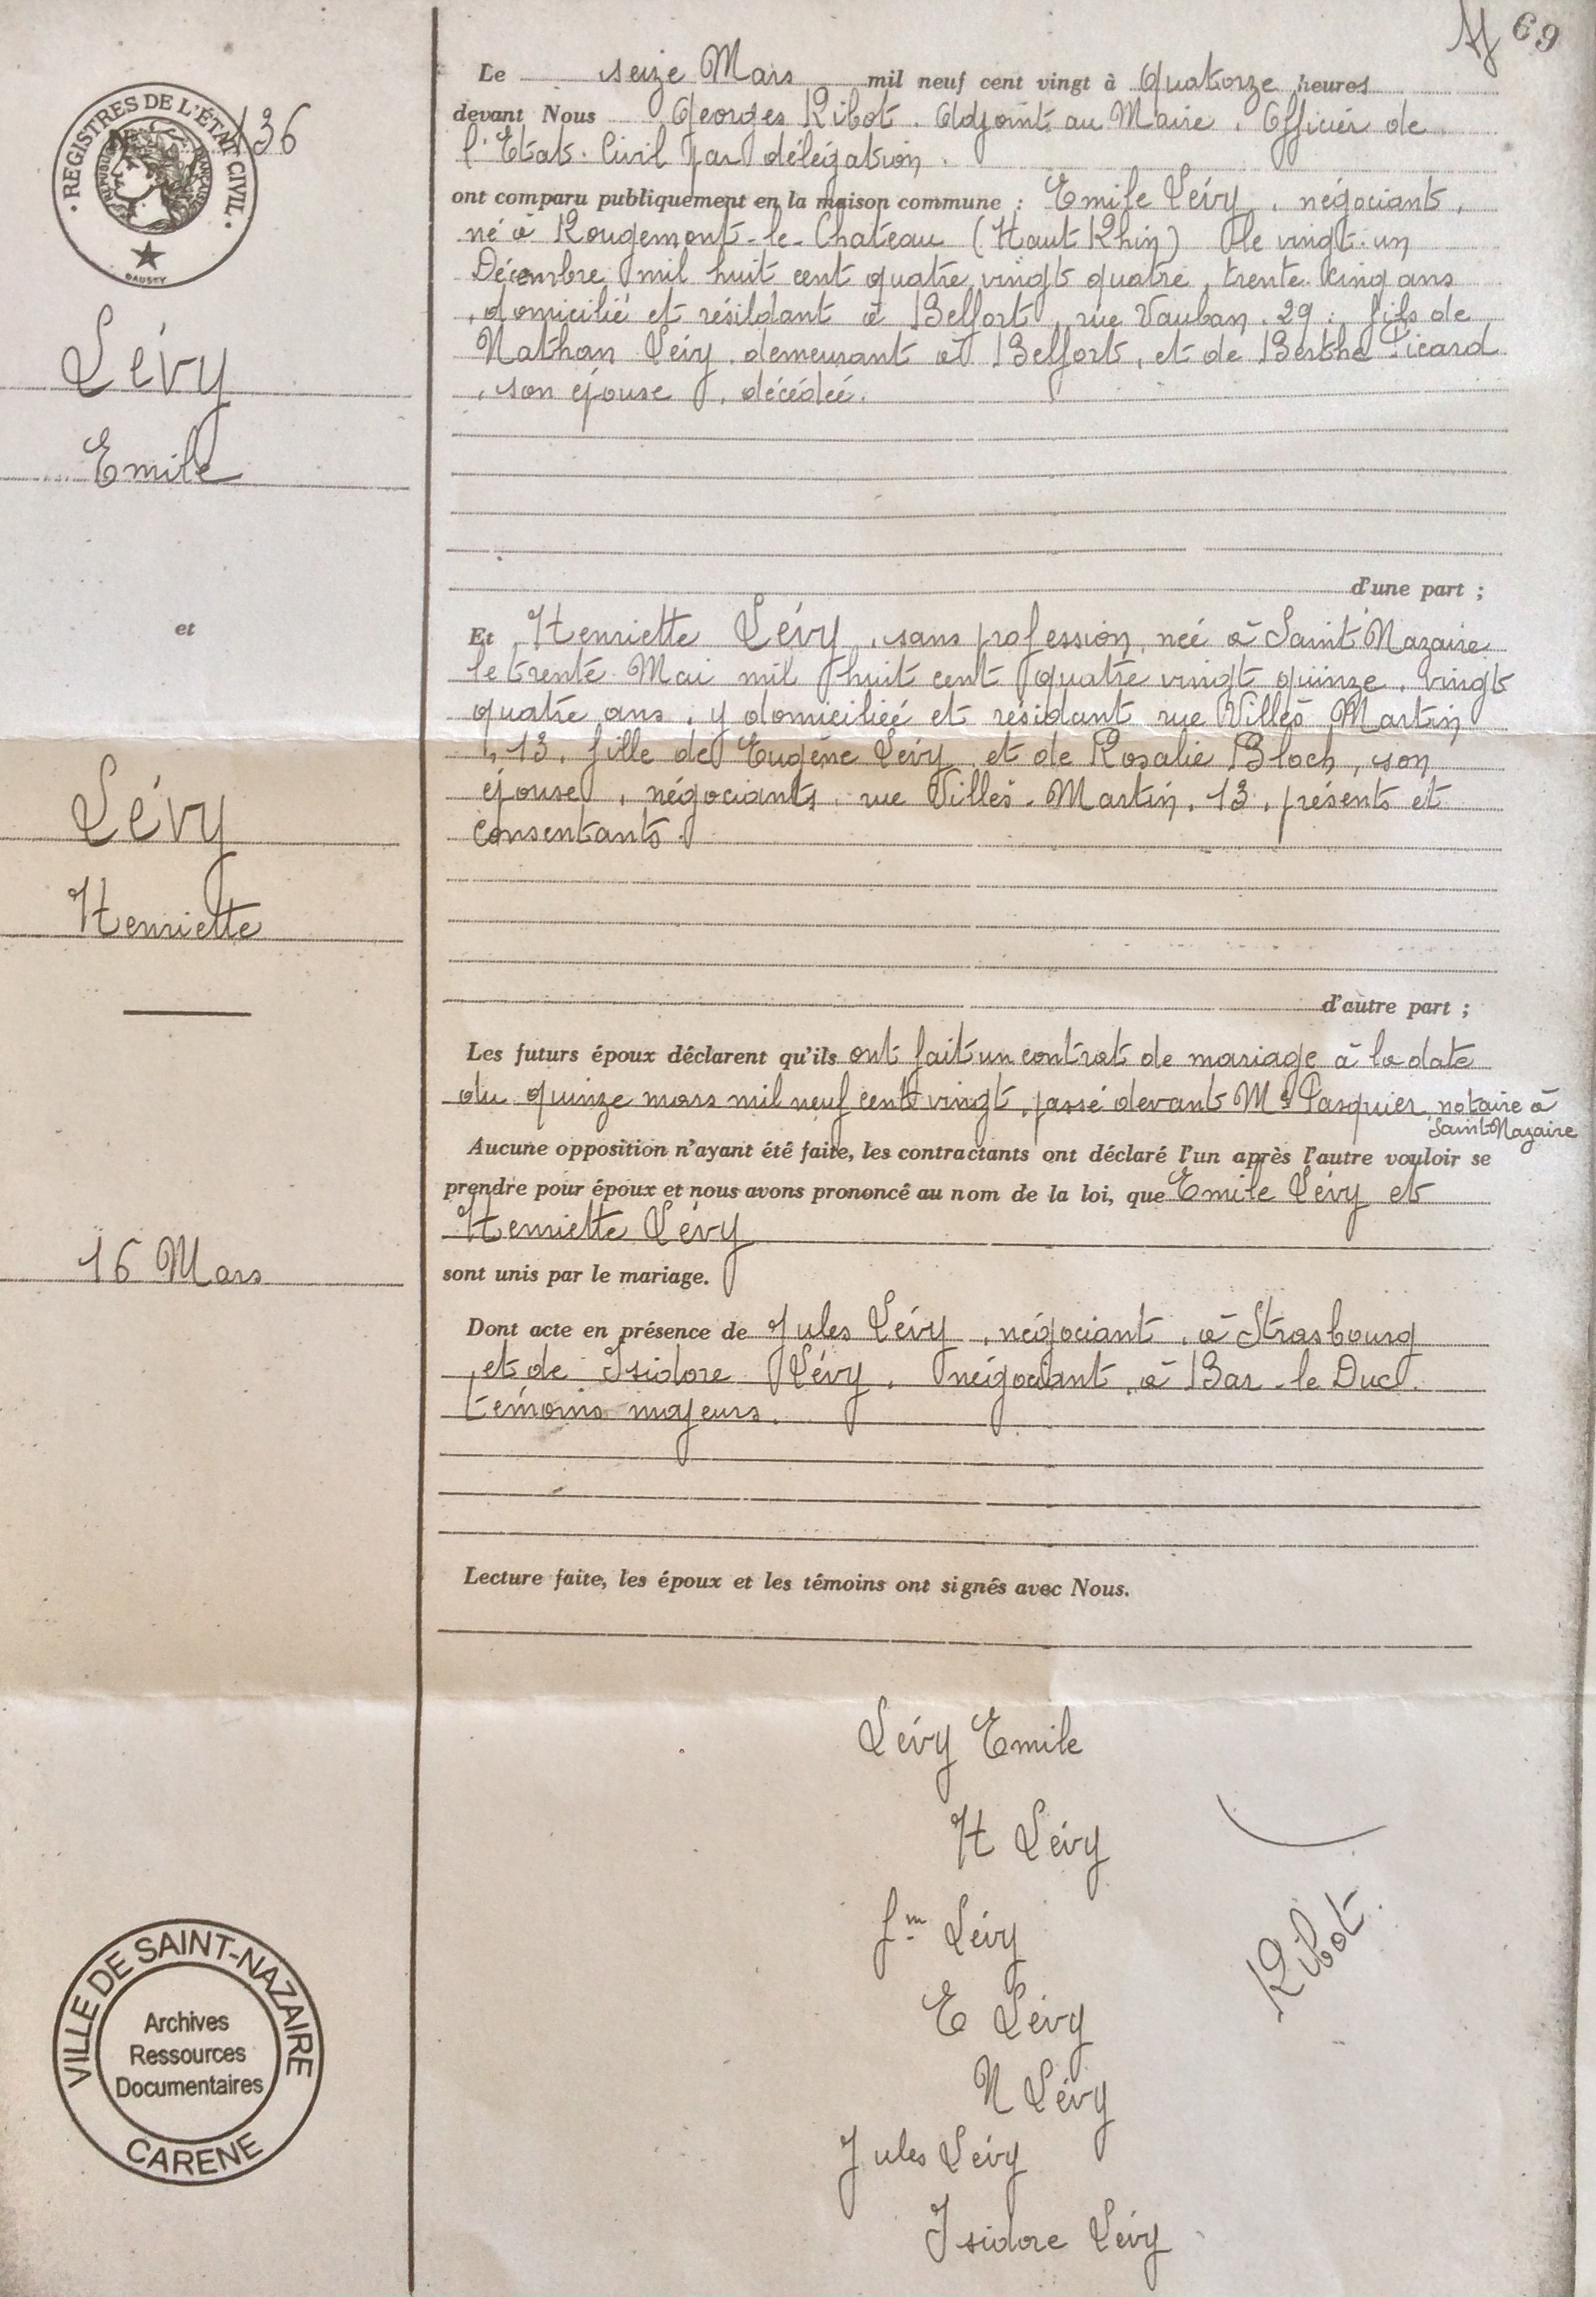 69
REGISTRES DE L'ÉTAT CIVIL
136
Le seize Mars mil neuf cent vingt à Quatorze heures
devant Nous Georges Ribot, Adjoint au Maire, Officier de
l'Etat-Civil par délégation.
ont comparu publiquement en la maison commune : Emile Lévy, négociant,
né à Rougemont-le-Chateau (Haut Rhin) le vingt-un
Décembre mil huit cent quatre vingt quatre, trente cinq ans
, domicilié et résidant à Belfort, rue Vauban, 29, fils de
Nathan Lévy demeurant à Belfort, et de Berthe Picard
, son épouse, décédée.
d'une part ;
Lévy
Emile
et
Et Henriette Lévy, sans profession, née à Saint Nazaire
le trente Mai mil huit cent quatre vingt quinze, vingt
quatre ans, y domiciliée et résidant rue Villès Martin
, 13, fille de Eugène Lévy et de Rosalie Bloch, son
épouse, négociants, rue Villès-Martin, 13, présents et
consentants.
d'autre part ;
Lévy
Henriette
Les futurs époux déclarent qu'ils ont fait un contrat de mariage à la date
du quinze mars mil neuf cent vingt, passé devant Me Pasquier, notaire à
Saint Nazaire
Aucune opposition n'ayant été faite, les contractants ont déclaré l'un après l'autre vouloir se
prendre pour époux et nous avons prononcé au nom de la loi, que Emile Lévy et
Henriette Lévy
sont unis par le mariage.
16 Mars
Dont acte en présence de Jules Lévy, négociant, à Strasbourg
, et de Isidore Lévy, négociant, à Bar-le Duc,
témoins majeurs.
Lecture faite, les époux et les témoins ont signés avec Nous.
Lévy Emile
H Lévy
fm Lévy
E Lévy
Ribot.
N Lévy
Jules Lévy
Isidore Lévy
VILLE DE SAINT-NAZAIRE
Archives
Ressources
Documentaires
CARENE